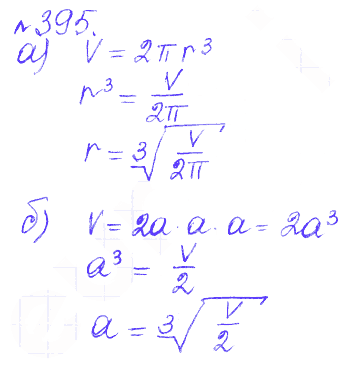 №395.
а) V = 2πr³
r³ = V/2π
r = ∛(V/2π)
б) V = 2a · a · a = 2a³
a³ = V/2
a = ∛(V/2)